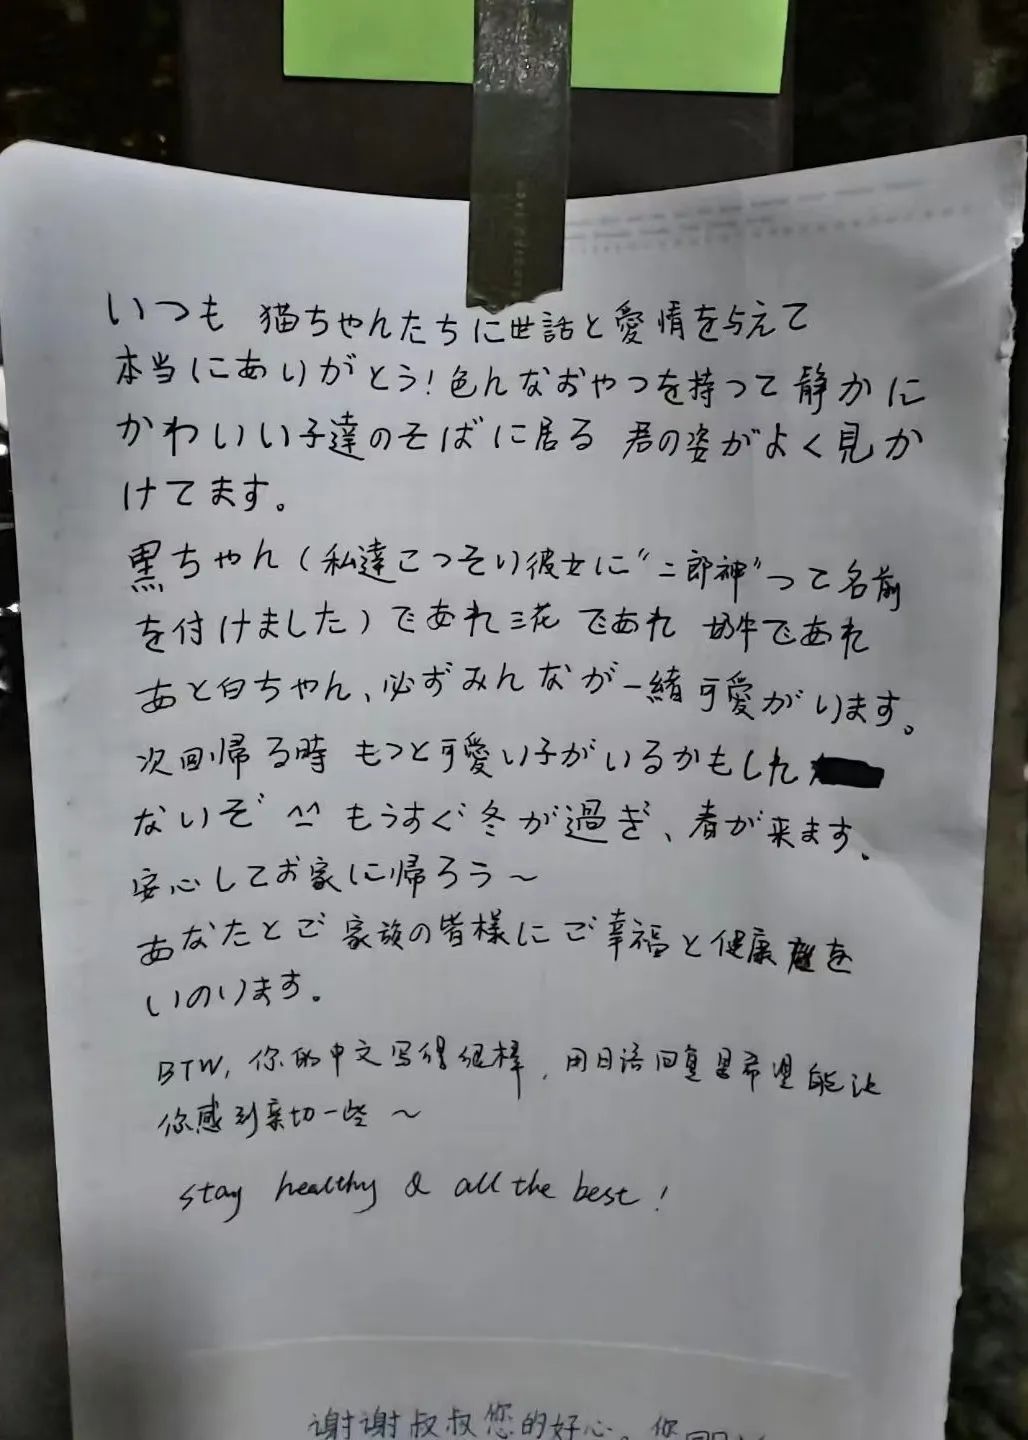 いつも 猫ちゃんたちに世話と愛情を与えて
本当にありがとう!色んなおやつを持って静かに
かわいい子達のそばに居る 君の姿がよく見か
けてます。
黒ちゃん(私達こっそり彼女に"二郎神"って名前
を付けました)であれ三花 であれ 奶牛であれ
あと白ちゃん、必ずみんなが一緒可愛がります。
次回帰る時 もっと可愛い子がいるかもしれ
ないぞ ^^ もうすぐ冬が過ぎ、春が来ます。
安心してお家に帰ろう~
あなたとご家族の皆様にご幸福と健康を
いのります。
BTW, 你的中文写得很棒，用日语回复是希望能让
你感到亲切一些~
stay healthy & all the best!
谢谢叔叔您的好心。您